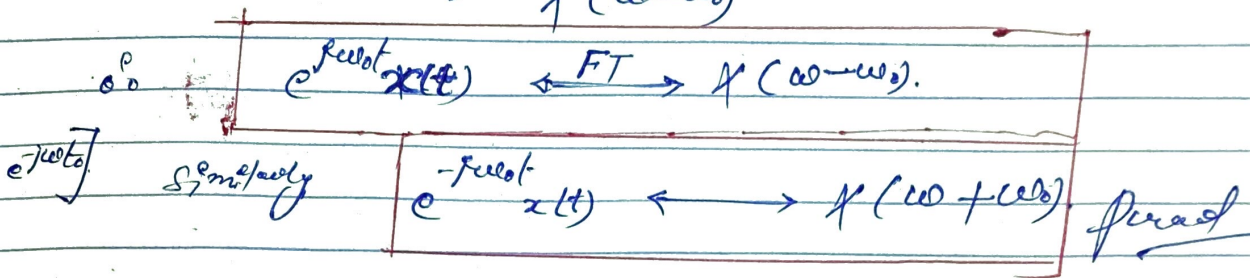 X(ω-ω₀)
∴ e^{jω₀t} x(t) ⟷^{FT} X(ω-ω₀).
e^{-jωt₀}]
Similarly e^{-jω₀t} x(t) ⟷ X(ω+ω₀). Proved